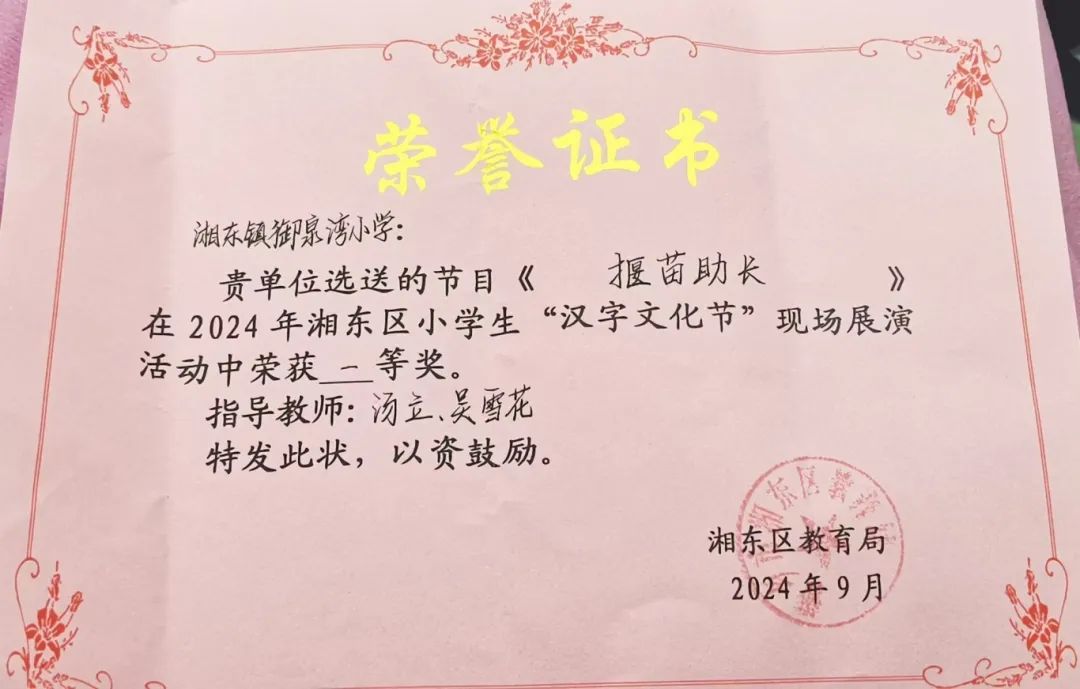 荣誉证书
湘东镇御泉湾小学：
贵单位选送的节目《 揠苗助长 》
在2024年湘东区小学生“汉字文化节”现场展演
活动中荣获 一 等奖。
指导教师：汤立、吴雪花
特发此状，以资鼓励。
湘东区教育局
2024年9月